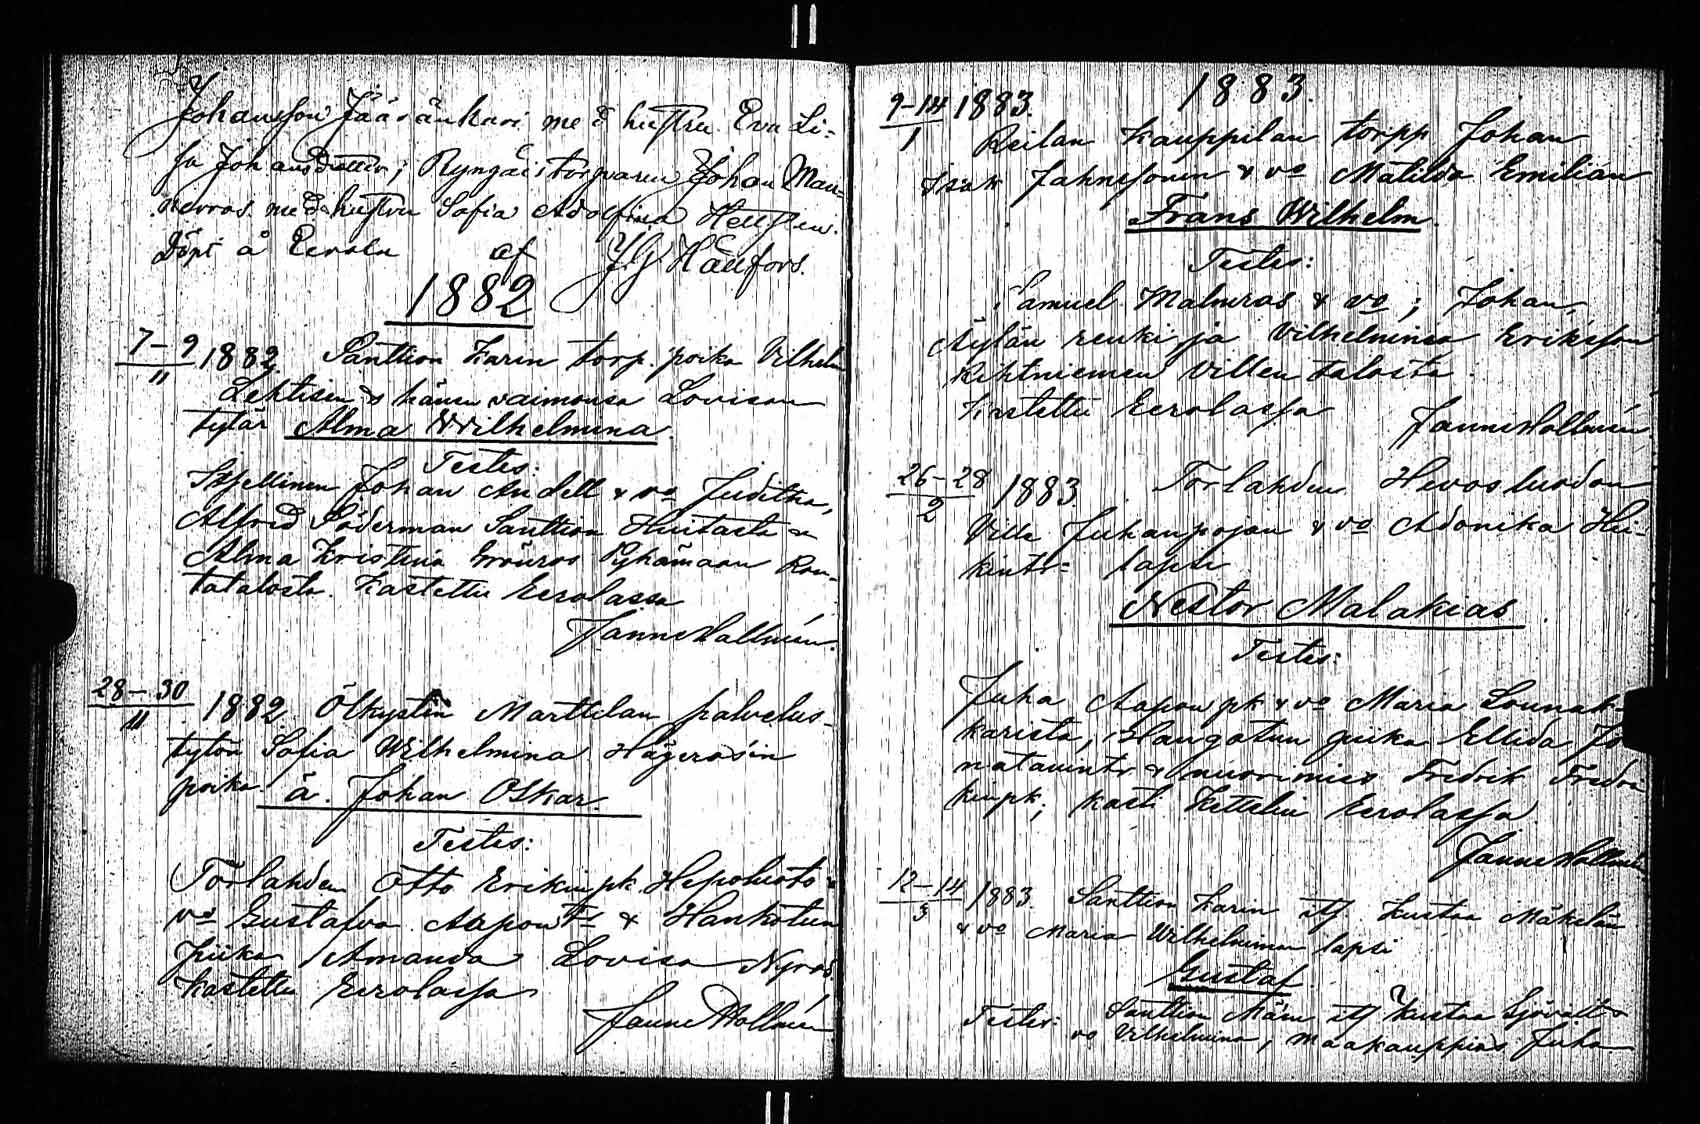 Johansson Jääränkari med hustru Eva Li-
sa Johansdotter; Ryngäis torparen Johan Man-
nerros med hustru Sofia Adolfina Hellsten.
Döpt å Eerola af J.G. Hällfors.
1882
7–9/11 1882. Santtion Karin torp. poika Vilhelm
Lehtisen & hänen vaimonsa Lovisan
tytär Alma Wilhelmina.
Testes:
Itsellinen Johan Andell & vo Juditha,
Alfrid Söderman Santtion Huitasta &
Alma Kristina Grönros Pyhämaan Ran-
tatalosta. Kastettu Eerolassa
Janne Wallmén.
28–30/11 1882. Ölkystin Marttilan palvelus-
tytön Sofia Wilhelmina Hägerosin
poika ä. Johan Oskar.
Testes:
Torlahden Otto Erikinpk. Hepohuoto &
vo Gustafva Aapont. & Hankotun
piika Amanda Lovisa Nyros.
Kastettu Eerolassa
Janne Wallmén
1883.
9–14/1 1883.
Reilan Kauppilan torpp. Johan
Isak Jahnssonin & vo Matilda Emilian
Frans Wilhelm.
Testes:
Samuel Malmros & vo; Johan,
Äylän renki ja Vilhelmina Eriksson
Kihtniemen Villen talosta.
Kastettu Eerolassa
Janne Wallmén
26–28/2 1883. Torlahden Hevosluodon
Ville Juhanpojan & vo Adonika Hei-
kintr= lapsi
Nestor Malakias.
Testes:
Juha Aapon pk & vo Maria Lounat-
karista, Haugotun piika Ellida Jo
natanintr. & nuorimies Fredrik Fredri
kinpk; kasti Kettelin Eerolassa.
Janne Wallmén
12–14/3 1883. Santtion Karin its. Kustaa Mäkelän
& vo Maria Wilhelminan lapsi
Gustaf.
Testes: Santtion Mäen its Kustaa Sjövall &
vo Vilhelmina, maakauppias Juha